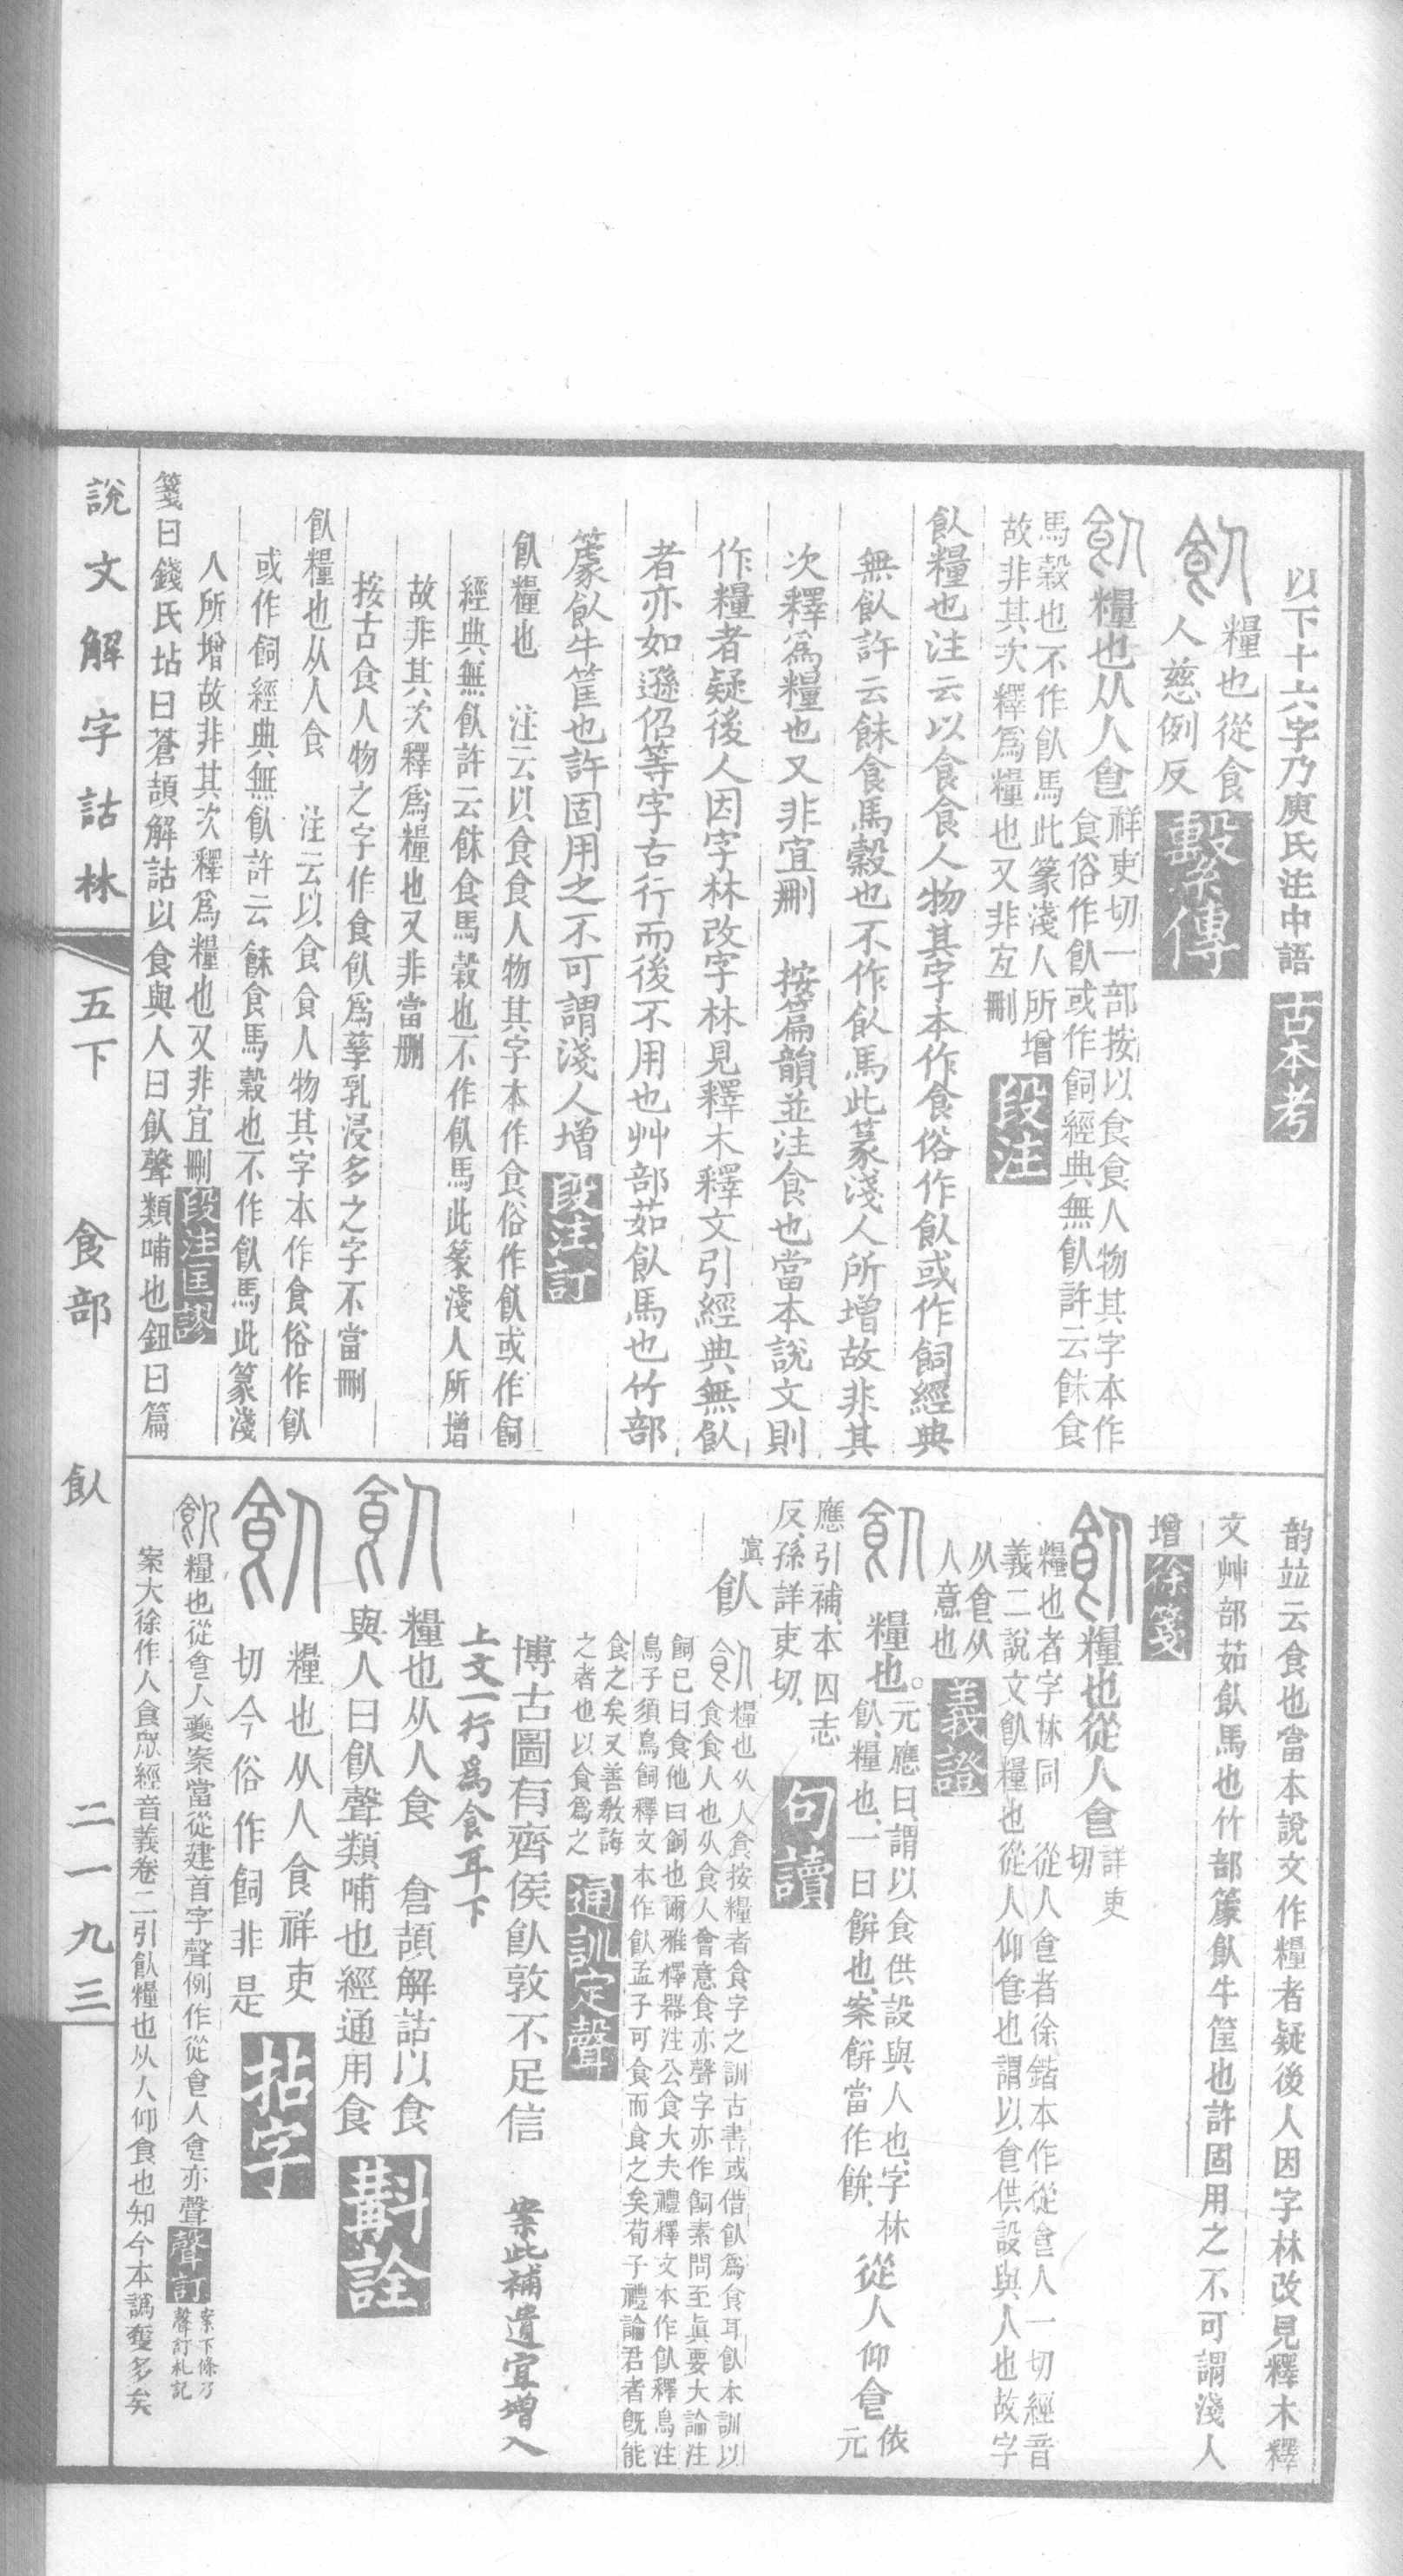 以下十六字乃庾氏注中語 古本考
糧也從食
人慈例反 繫傳
糧也从人𠊊
祥吏切一部按以食食人物其字本作
食俗作飤或作飼經典無飤許云餗食
馬穀也不作飤馬此篆淺人所增
故非其次釋爲糧也又非宐刪 段注
飤糧也注云以食食人物其字本作食俗作飤或作飼經典
無飤許云餗食馬穀也不作飤馬此篆淺人所增故非其
次釋爲糧也又非宜刪 按篇韻並注食也當本說文則
作糧者疑後人因字林改字林見釋木釋文引經典無飤
者亦如遜佋等字古行而後不用也艸部茹飤馬也竹部
篆飤牛筐也許固用之不可謂淺人增 段注訂
飤糧也 注云以食食人物其字本作食俗作飤或作飼
經典無飤許云餗食馬穀也不作飤馬此篆淺人所增
故非其次釋爲糧也又非當刪
按古食人物之字作食飤爲孳乳浸多之字不當刪
飤糧也从人食 注云以食食人物其字本作食俗作飤
或作飼經典無飤許云餗食馬穀也不作飤馬此篆淺
人所增故非其次釋爲糧也又非宜刪 段注匡謬
箋曰錢氏坫曰蒼頡解詁以食與人曰飤聲類哺也鈕曰篇
韵竝云食也當本說文作糧者疑後人因字林改見釋木釋
文艸部茹飤馬也竹部篆飤牛筐也許固用之不可謂淺人
增 徐箋
糧也從人食 詳吏切
糧也者字林同 從人食者徐鍇本作從食人一切經音
義二說文飤糧也從人仰食也謂以食供設與人也故字
从食从
人意也 義證
糧也。元應曰、謂以食供設與人也、字林
飤、糧也、一曰餅也、案餅當作餠、 從人仰食 依元
應引補、本囚志
反、孫詳吏切、 句讀
飤
糧也从人食按糧者食字之訓古書或借飤爲食耳飤本訓以
食食人也从食人會意食亦聲字亦作飼素問至眞要大論注
飼已曰食他曰飼也爾雅釋器注公食大夫禮釋文本作飤釋鳥注
鳥子須鳥飼釋文本作飤孟子可食而食之矣荀子禮論君者旣能
食之矣又善敎誨
之者也以食爲之 通訓定聲
博古圖有齊侯飤敦不足信 案此補遺宜增入
上文一行爲食耳下
糧也从人食 倉頡解詁以食
與人曰飤聲類哺也經通用食 斠詮
糧也从人食祥吏
切今俗作飼非是 拈字
糧也從食人夔案當從建首字聲例作從食人食亦聲 聲訂 案下條乃聲訂札記
案大徐作人食眾經音義卷二引飤糧也从人仰食也知今本譌奪多矣
說文解字詁林 五下 食部 飤 二一九三